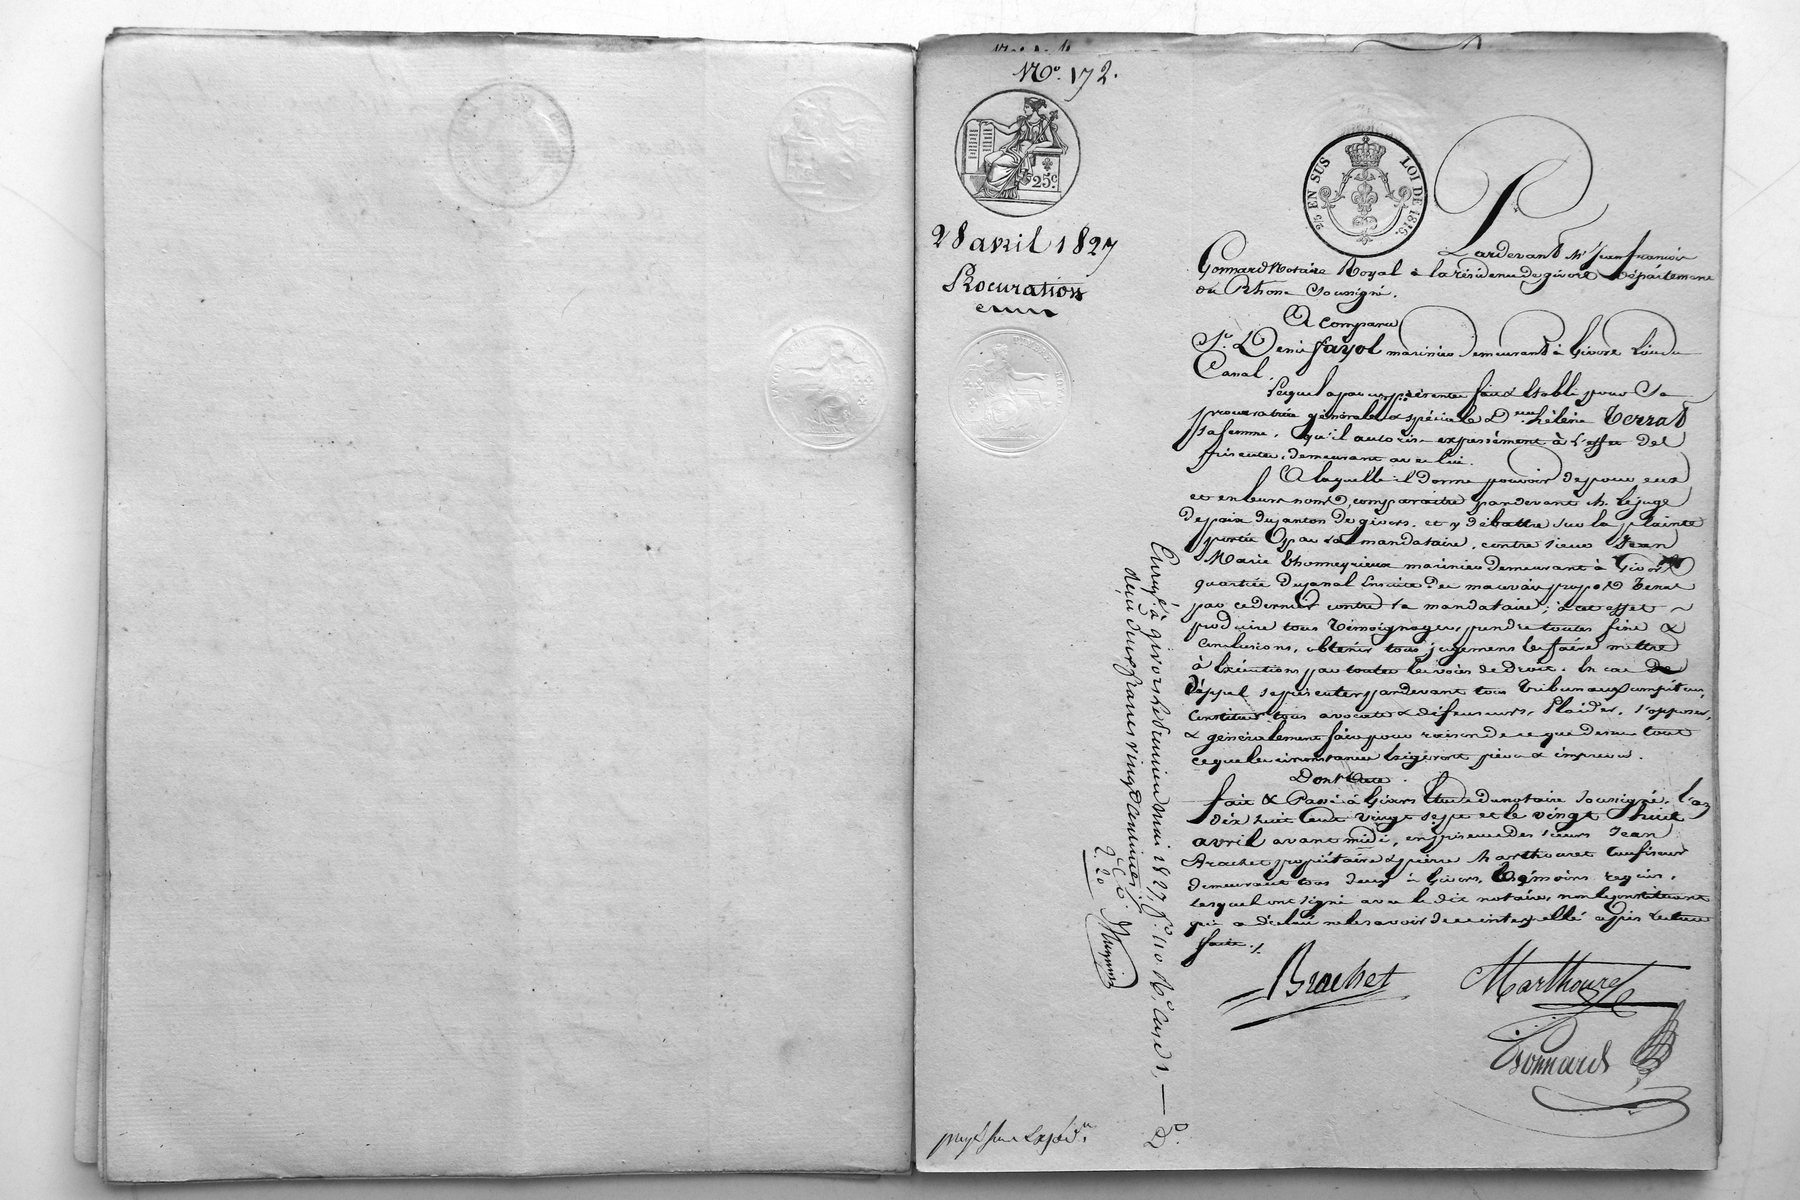 N.º 172.
25.ᶜ
2/5 EN SUS LOI DE 1816.
28 avril 1827
Procuration
Pardevant M.ᵉ Jean françois
Gonnard Notaire Royal à la résidence de givors Département
du Rhone soussigné.
A comparu
S.ʳ Denis fayol marinier demeurant à Givors lieu du
Canal.
Lequel a par ces présentes fait & établi pour sa
procuratrice générale & spéciale D.ᵐᵉ hélène Terrat
sa femme, qu'il autorise expressément à l'effet des
présentes, demeurant avec lui.
A laquelle il donne pouvoir de pour eux
et en leurs noms, comparaitre pardevant M. le juge
de paix du canton de givors, et y débattre sur la plainte
portée par la mandataire, contre sieur Jean
Marie thonneyrieux marinier demeurant à Givors
quartier du canal Ensuite des mauvais propos tenus
par ce dernier contre la mandataire; à cet effet
produire tous témoignages, prendre toutes fins &
conclusions, obtenir tous jugemens les faire mettre
à Exécution par toutes les voies de droit. En cas de
d'appel se présenter pardevant tous tribunaux compétens,
constituer tous avocats & défenseurs, Plaider, s'opposer,
& généralement faire pour raison de ce que dessus tout
ce que les circonstances Exigeront prévu & imprévu.
Dont Acte.
fait & Passé à Givors Etude du notaire soussigné, l'an
dix huit cent vingt sept et le vingt huit
avril avant midi, en présence des sieurs Jean
Brachet propriétaire & pierre Marthouret Confiseur
demeurant tous deux à Givors, témoins requis,
lesquels ont signé avec le dit notaire, non le constituant
qui a déclaré ne le savoir de ce interpellé après lecture
faite ./.
Brachet Marthouret
Gonnard
Enreg.é à givors le deux mai 1827. f.º 110. R.º Case 1.
reçu deux francs vingt centimes
2. 20
D.º